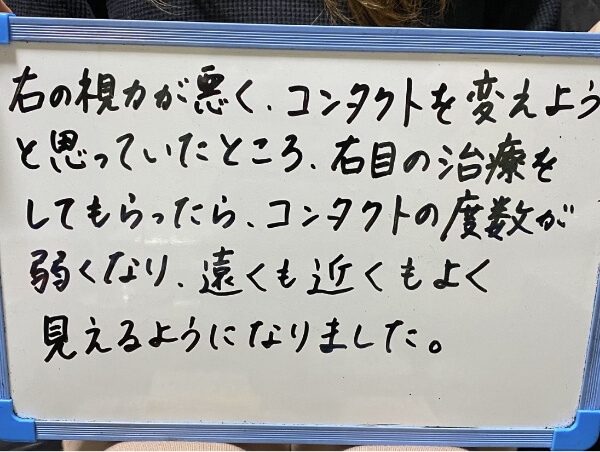 右の視力が悪く、コンタクトを変えよう
と思っていたところ、右目の治療を
してもらったら、コンタクトの度数が
弱くなり、遠くも近くもよく
見えるようになりました。